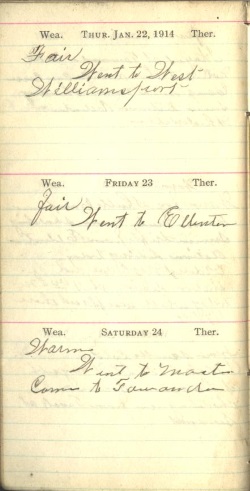 Wea. THUR. JAN. 22, 1914 Ther.
Fair
Went to West
Williamsport
Wea. FRIDAY 23 Ther.
fair
Went to Ellenton
Wea. SATURDAY 24 Ther.
Warm
Went to
Come to Towanda